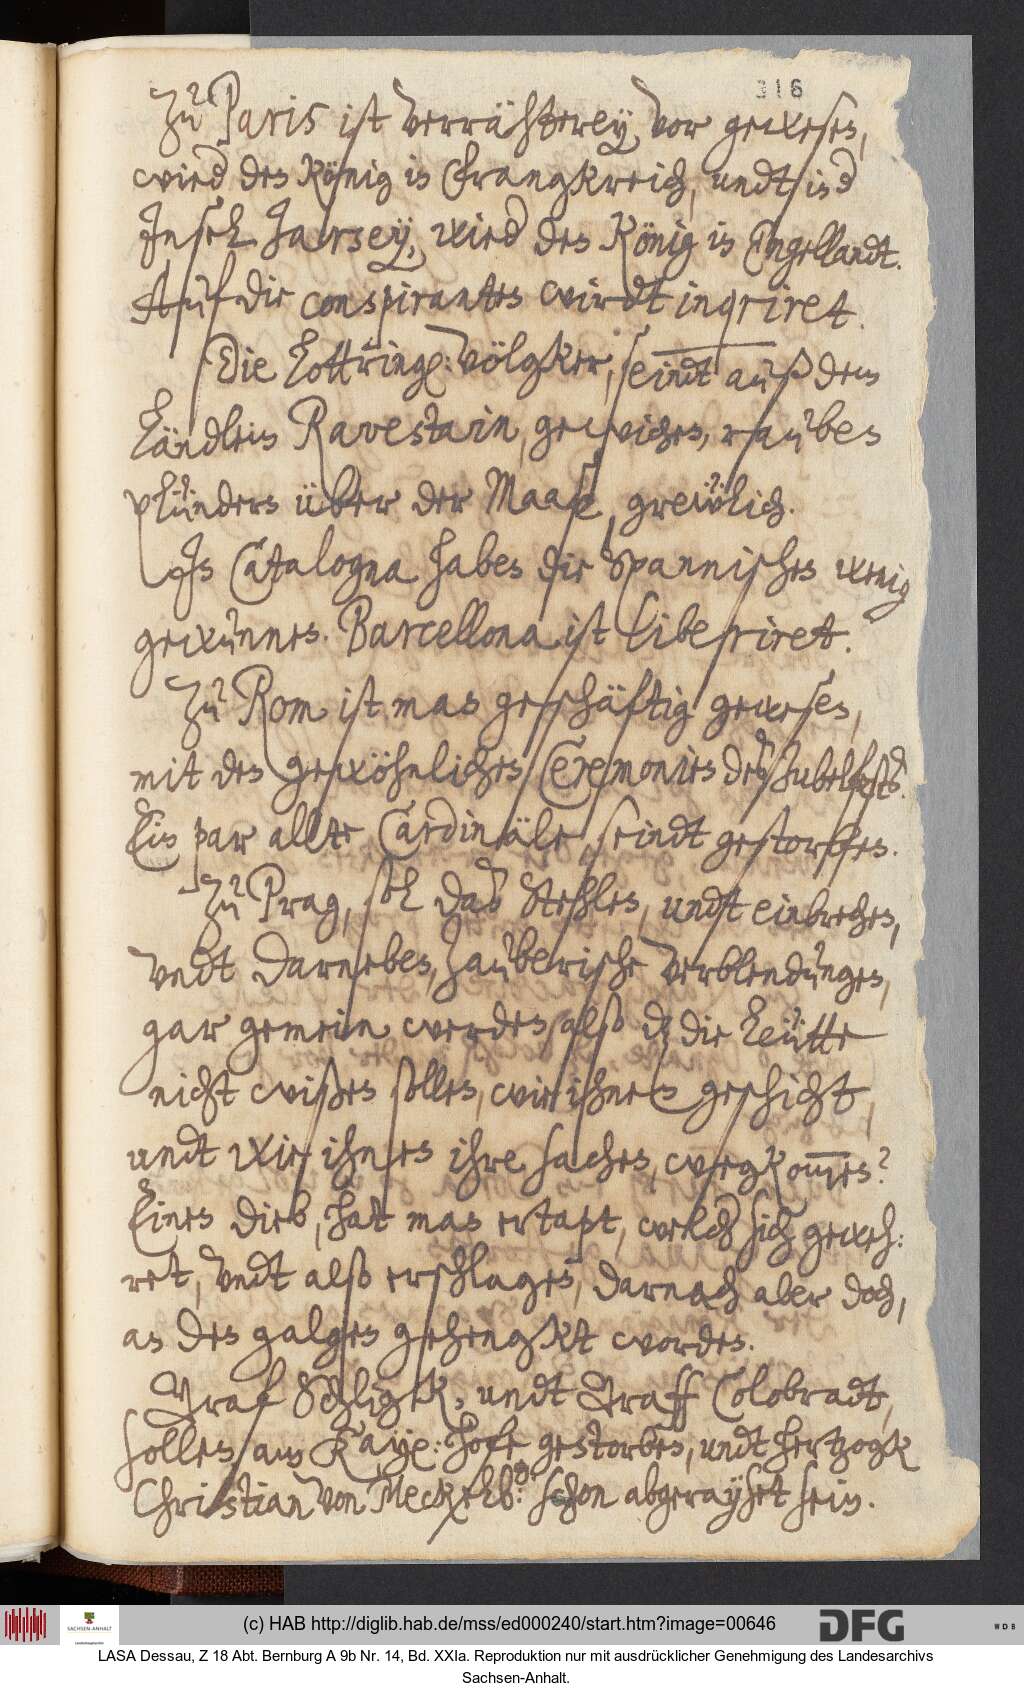 316
Zu Paris ist verrähterey vor gewesen,
wied den König in Frangkreich, undt ind
Inseh Jarsey, wied den König in Engellandt.
Auf die conspiranten wirdt inqriret.
Die Lottringe: völgker, seindt auß dem
Ländlein Ravestain, gewichen, rauben
plündern über der Maase, grewlich.
In Catalogna haben die Spannischen wenig
gewunnen. Barcellona ist liberiret.
Zu Rom ist man geschäftig gewesen,
mit den gewöhnlichen Ceremonien des Jubelfests.
Ein par allte Cardinäle, seindt gestorben.
Zu Prag, soll das Stehlen, undt einbrechen,
vndt darneben, zauberische verblendungen,
gar gemein werden, also dz die Leütte
nicht wißen sollen, wie ihnen geschicht,
undt wie ihnen ihre sachen, wegkom̅en?
Einen dieb, hat man ertapt, welcher sich geweh:
ret, vndt also erschlagen, darnach aber doch,
an den galgen gehengkt worden.
Graf Schligk, undt Graff Colobradt,
sollen am Kaye: hofe gestorben, undt hertzogk
Christian von Meckelb: schon abgerayset sein.
(c) HAB http://diglib.hab.de/mss/ed000240/start.htm?image=00646
DFG
WDB
SACHSEN-ANHALT
LASA Dessau, Z 18 Abt. Bernburg A 9b Nr. 14, Bd. XXIa. Reproduktion nur mit ausdrücklicher Genehmigung des Landesarchivs
Sachsen-Anhalt.